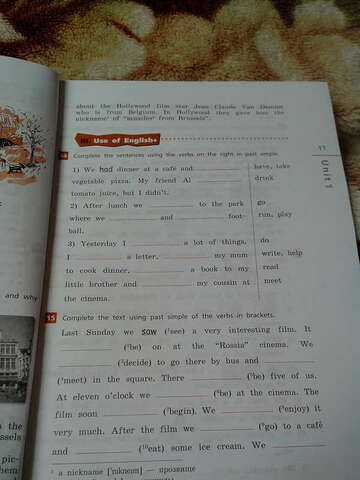 about the Hollywood film star Jean Claude Van Damme
who is from Belgium. In Hollywood they gave him the
nickname¹ of "muscles from Brussels".
Use of English
11
Unit 1
14 Complete the sentences using the verbs on the right in past simple.
1) We had dinner at a café and ________ have, take
vegetable pizza. My friend Al ________ drink
tomato juice, but I didn't.
2) After lunch we ________ to the park go
where we ________ and ________ foot- run, play
ball.
3) Yesterday I ________ a lot of things. do
I ________ a letter, ________ my mum write, help
to cook dinner, ________ a book to my read
little brother and ________ my cousin at meet
the cinema.
15 Complete the text using past simple of the verbs in brackets.
Last Sunday we saw (¹see) a very interesting film. It
________ (²be) on at the "Rossia" cinema. We
________ (³decide) to go there by bus and ________
(⁴meet) in the square. There ________ (⁵be) five of us.
At eleven o'clock we ________ (⁶be) at the cinema. The
film soon ________ (⁷begin). We ________ (⁸enjoy) it
very much. After the film we ________ (⁹go) to a café
and ________ (¹⁰eat) some ice cream. We ________
¹ a nickname [ˈnɪkneɪm] — прозвание
and why
the
ssels
pic-
hem